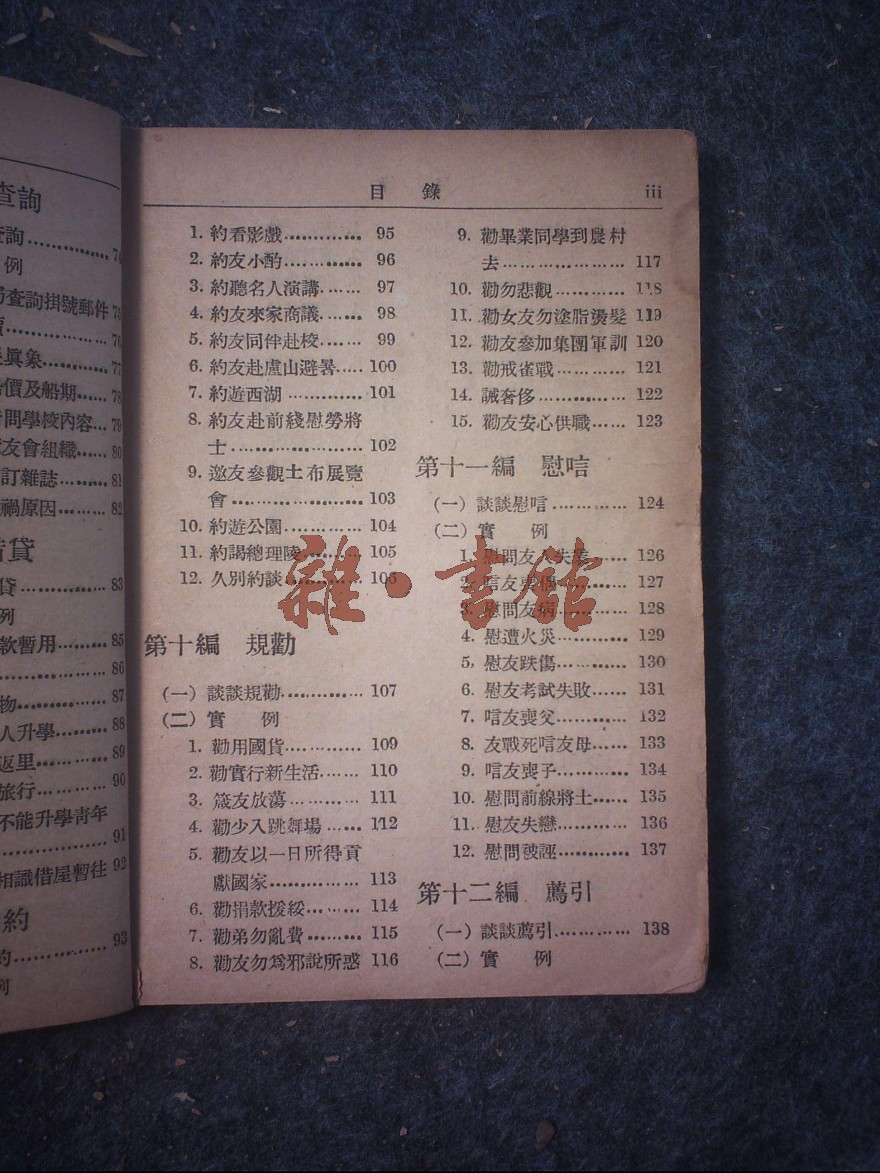 查詢
查詢………… 74
例
查詢掛號郵件 75
76
真象……… 77
價及船期…… 78
問學校內容… 79
友會組織…… 80
訂雜誌…… 81
禍原因…… 82
貸
貸………… 83
例
款暫用……… 85
………… 86
物……… 87
人升學……… 88
返里……… 89
旅行……… 90
不能升學靑年
………… 91
相識借屋暫住 92
約
約………… 93
例
目 錄 iii
1. 約看影戲………… 95
2. 約友小酌………… 96
3. 約聽名人演講…… 97
4. 約友來家商議…… 98
5. 約友同伴赴校…… 99
6. 約友赴盧山避暑…… 100
7. 約遊西湖………… 101
8. 約友赴前綫慰勞將
士………………… 102
9. 邀友參觀土布展覽
會………………… 103
10. 約遊公園………… 104
11. 約謁總理陵……… 105
12. 久別約談………… 106
第十編 規勸
(一) 談談規勸………… 107
(二) 實 例
1. 勸用國貨………… 109
2. 勸實行新生活…… 110
3. 箴友放蕩………… 111
4. 勸少入跳舞場…… 112
5. 勸友以一日所得貢
獻國家…………… 113
6. 勸捐款援綏……… 114
7. 勸弟勿亂費……… 115
8. 勸友勿爲邪說所惑 116
9. 勸畢業同學到農村
去………………… 117
10. 勸勿悲觀………… 118
11. 勸女友勿塗脂燙髮 119
12. 勸友參加集團軍訓 120
13. 勸戒雀戰………… 121
14. 誡奢侈…………… 122
15. 勸友安心供職…… 123
第十一編 慰唁
(一) 談談慰唁………… 124
(二) 實 例
1. 慰問友人失業…… 126
2. 唁友喪偶………… 127
3. 慰問友病………… 128
4. 慰遭火災………… 129
5. 慰友跌傷………… 130
6. 慰友考試失敗…… 131
7. 唁友喪父………… 132
8. 友戰死唁友母…… 133
9. 唁友喪子………… 134
10. 慰問前線將士…… 135
11. 慰友失戀………… 136
12. 慰問被誣………… 137
第十二編 薦引
(一) 談談薦引………… 138
(二) 實 例
雜·書館